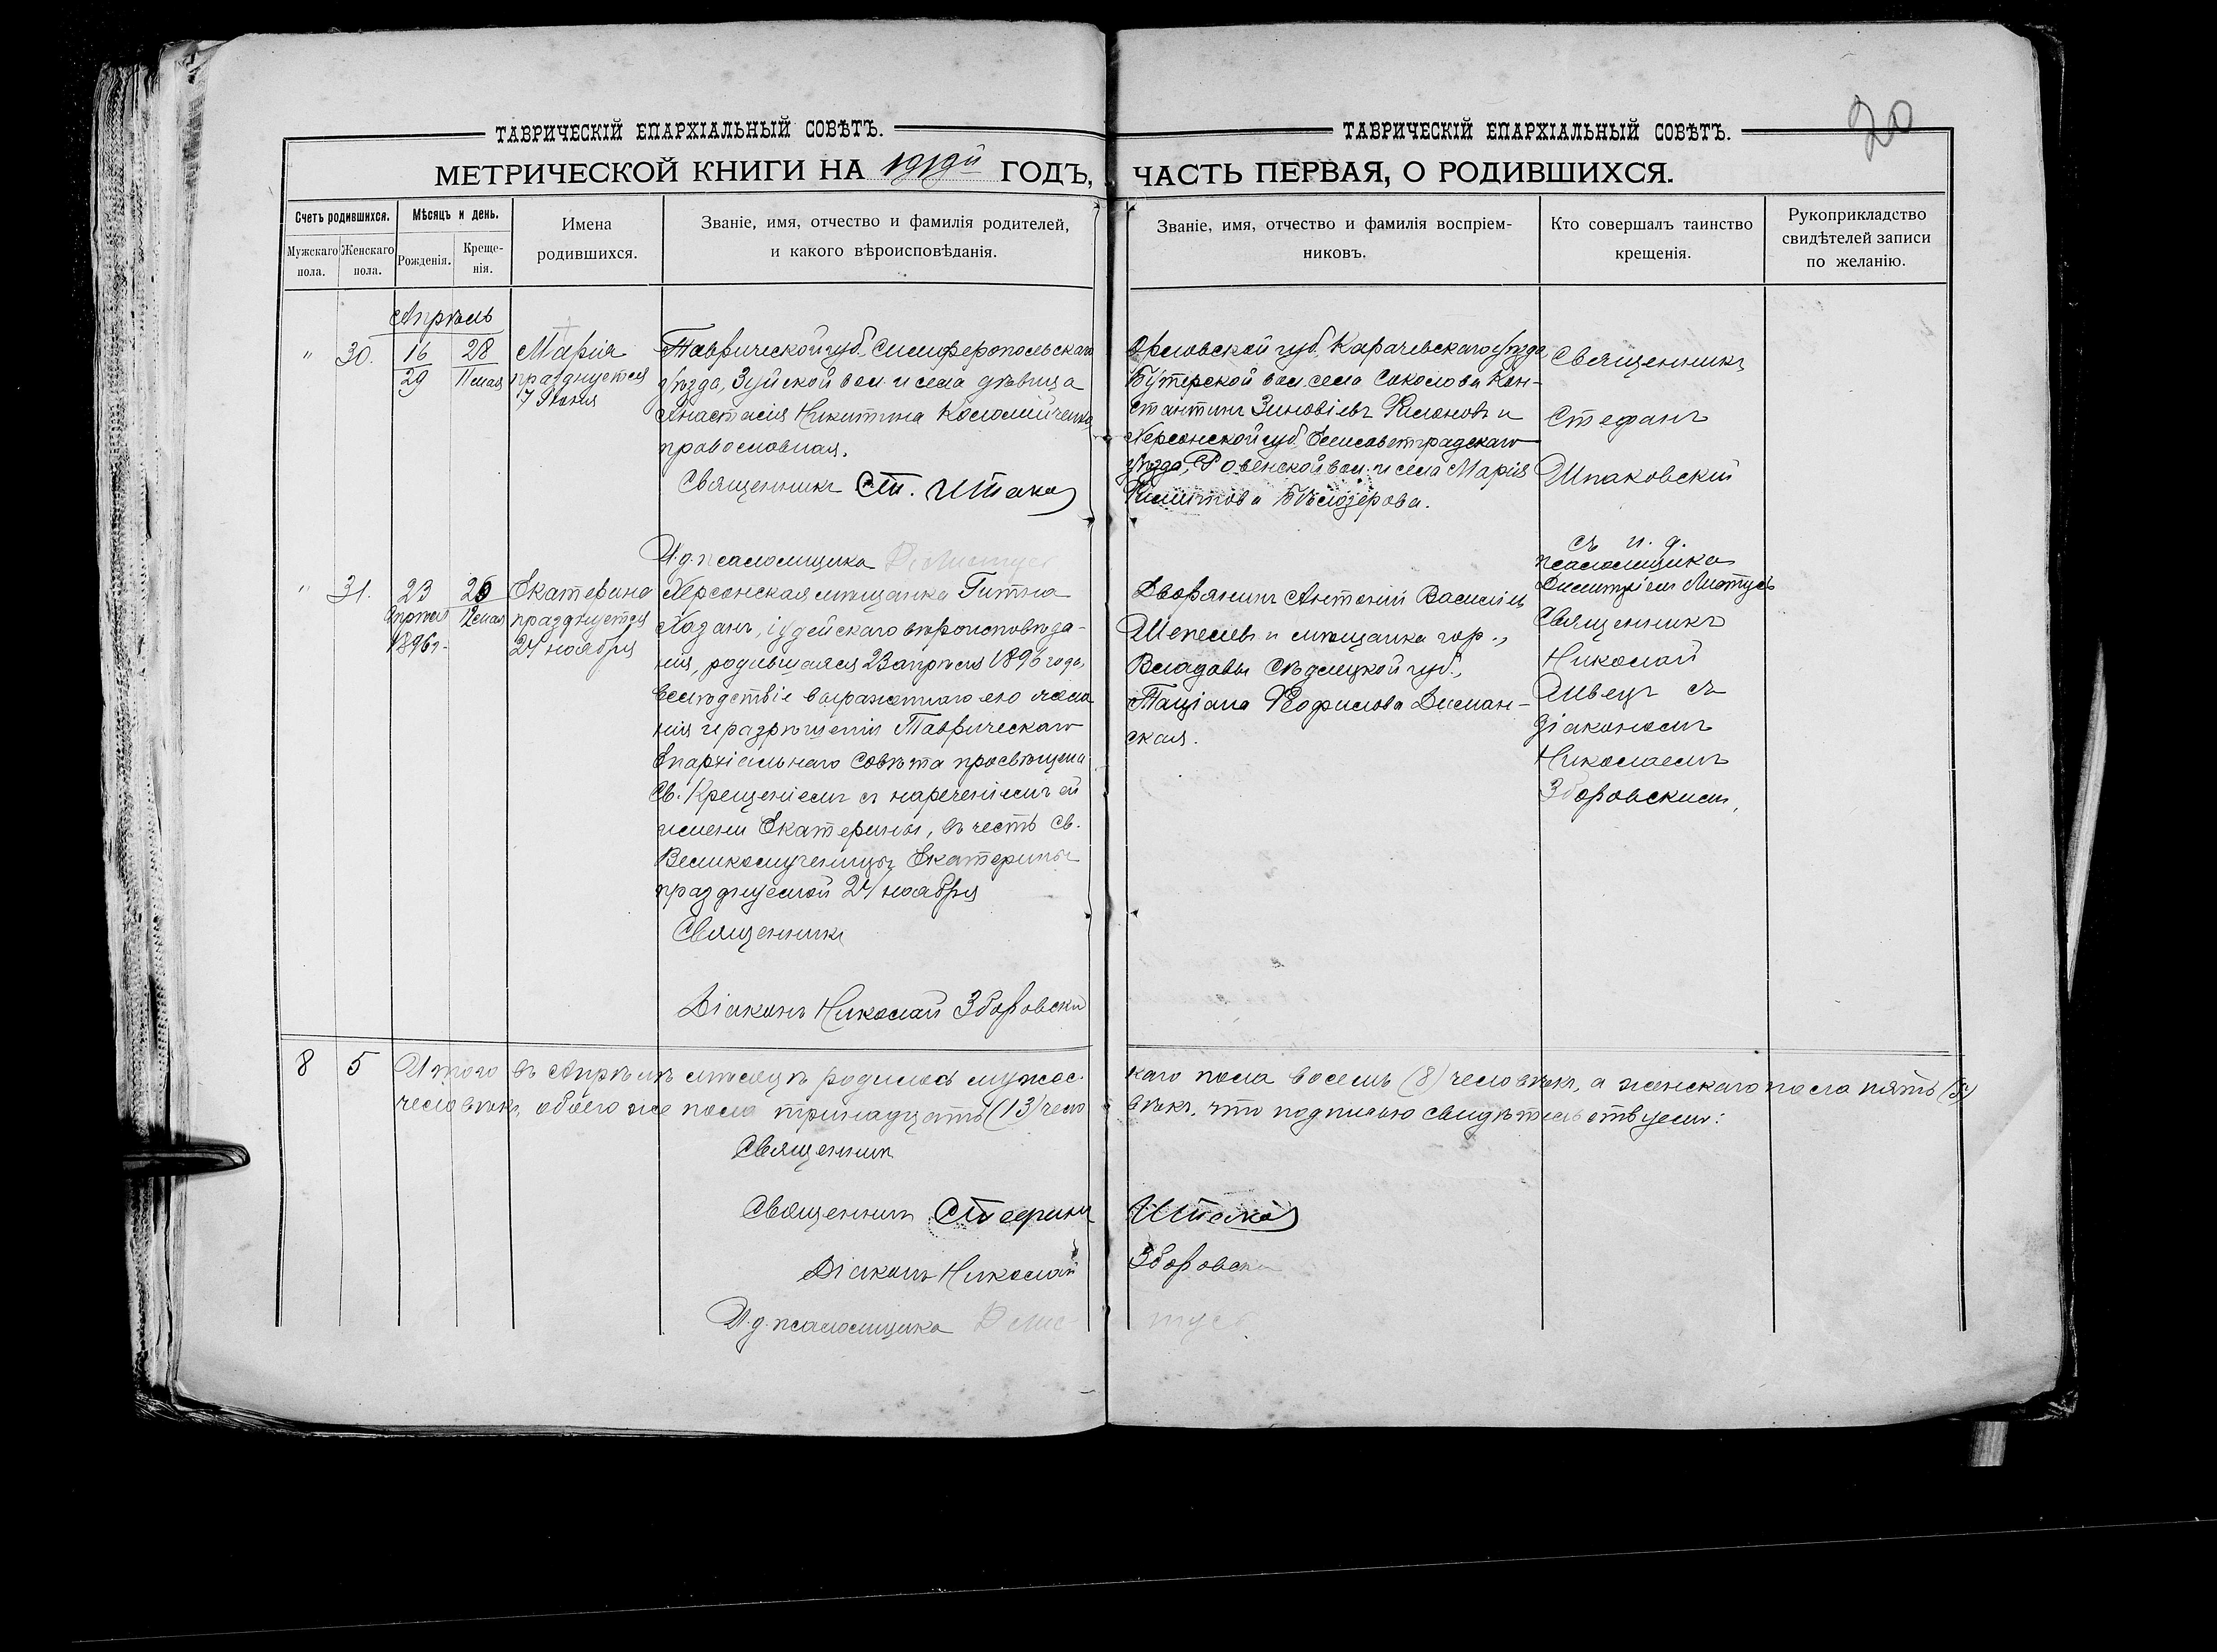 20
ТАВРИЧЕСКІЙ ЕПАРХІАЛЬНЫЙ СОВѢТЪ.
МЕТРИЧЕСКОЙ КНИГИ НА 1919й ГОДЪ,
Счетъ родившихся.
Мужескаго пола.
Женскаго пола.
Мѣсяцъ и день.
Рожденія.
Креще-
нія.
Имена
родившихся.
Званіе, имя, отчество и фамилія родителей,
и какого вѣроисповѣданія.
Апрѣль
" 30. 16 28 Марія
29 11 мая празднуется
7 Іюня
Таврической губ. Симферопольскаго
уѣзда, Зуйской вол. и села дѣвица
Анастасія Никитина Коломійченко,
православная.
Священникъ Ст. Шпако
И.д. псаломщика
" 31. 23 26 Екатерина
апрѣля 12 мая празднуется
1896 г. 24 ноября
Херсонская мѣщанка Гитля
Хазанъ, іудейскаго вѣроисповѣда-
нія, родившаяся 23 апрѣля 1896 года,
вслѣдствіе выраженнаго ею жела
нія и разрѣшенія Таврическаго
Епархіальнаго Совѣта просвѣщена
Св. Крещеніемъ съ нареченіемъ ей
имени Екатерины, въ честь Св.
Великомученицы Екатерины
празднуемой 24 ноября
Священникъ
Діаконъ Николай Зборовскій
8 5 Итого въ Апрѣлѣ мѣсяцѣ родилось мужес-
человѣкъ, обоего же пола тринадцать (13) чело
Священникъ
Священникъ Стефанъ
Діаконъ Николай
И.д. псаломщика Д Лис-
ТАВРИЧЕСКІЙ ЕПАРХІАЛЬНЫЙ СОВѢТЪ.
ЧАСТЬ ПЕРВАЯ, О РОДИВШИХСЯ.
Званіе, имя, отчество и фамилія воспріем-
никовъ.
Кто совершалъ таинство
крещенія.
Рукоприкладство
свидѣтелей записи
по желанію.
Орловской губ. Карачевскаго уѣзда
Бутерской вол. села Соколова Кон-
стантинъ Зиновіевъ и
Херсонской губ. Елисаветградскаго
уѣзда, Ровенской вол. и села Марія
Филиппова Бѣлозерова.
Священникъ
Стефанъ
Шпаковскій
съ и. д.
псаломщика
Димитріемъ
Дворянинъ Антоній Васильевъ
Шепелевъ и мѣщанка гор.
Влодавы Сѣдлецкой губ.,
Таціана
ская.
Священникъ
Николай
Швецъ съ
діакономъ
Николаемъ
Зборовскимъ.
каго пола восемь (8) человѣкъ, а женскаго пола пять (5)
вѣкъ, что подписью свидѣтельствуемъ:
Шпако
Зборовскі
тусъ